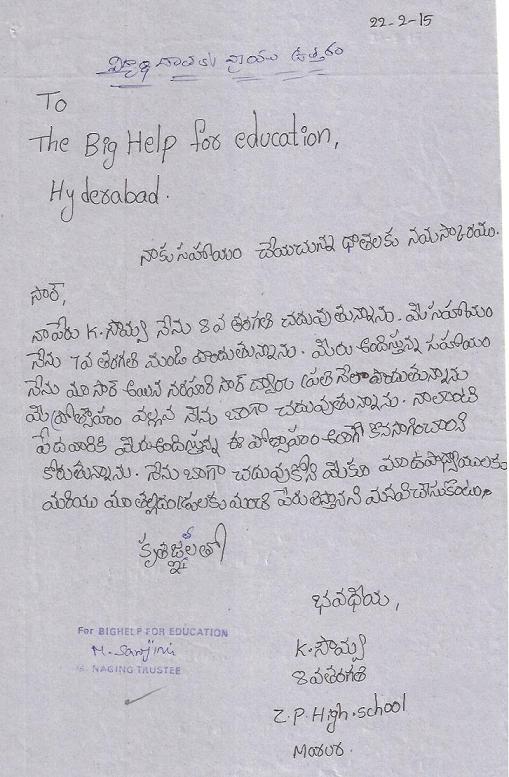 22-2-15
విద్యార్థి దాతలకు వ్రాయు ఉత్తరం
To
The Big Help for education,
Hyderabad.
నాకు సహాయం చేయుచున్న ధాతలకు నమస్కారము.
సార్,
నా పేరు K. సౌమ్య నేను 8వ తరగతి చదువుతున్నాను. మీ సహాయం
నేను 7వ తరగతి నుండి పొందుతున్నాను. మీరు అందిస్తున్న సహాయం
నేను మా సార్ అయిన నరహరి సార్ ద్వారా ప్రతి నెల పొందుతున్నాను
మీ ప్రోత్సాహం వల్లన నేను బాగా చదువుతున్నాను. నాలాంటి
పేదవారికి మీరు అందిస్తున్న ఈ పోత్సాహం ఇలాగే కొనసాగించాలని
కోరుతున్నాను. నేను బాగా చదువుకొని మీకు మా ఉపాధ్యాయులకు
మరియు మా తల్లిదండ్రులకు మంచి పేరు తెస్తానని మనవి చేసుకుంటు.
కృతజ్ఞలతో
భవధీయ,
K. సౌమ్య
8వ తరగతి
Z.P. High. school
Marur.
For BIGHELP FOR EDUCATION
NAGING TRUSTEE